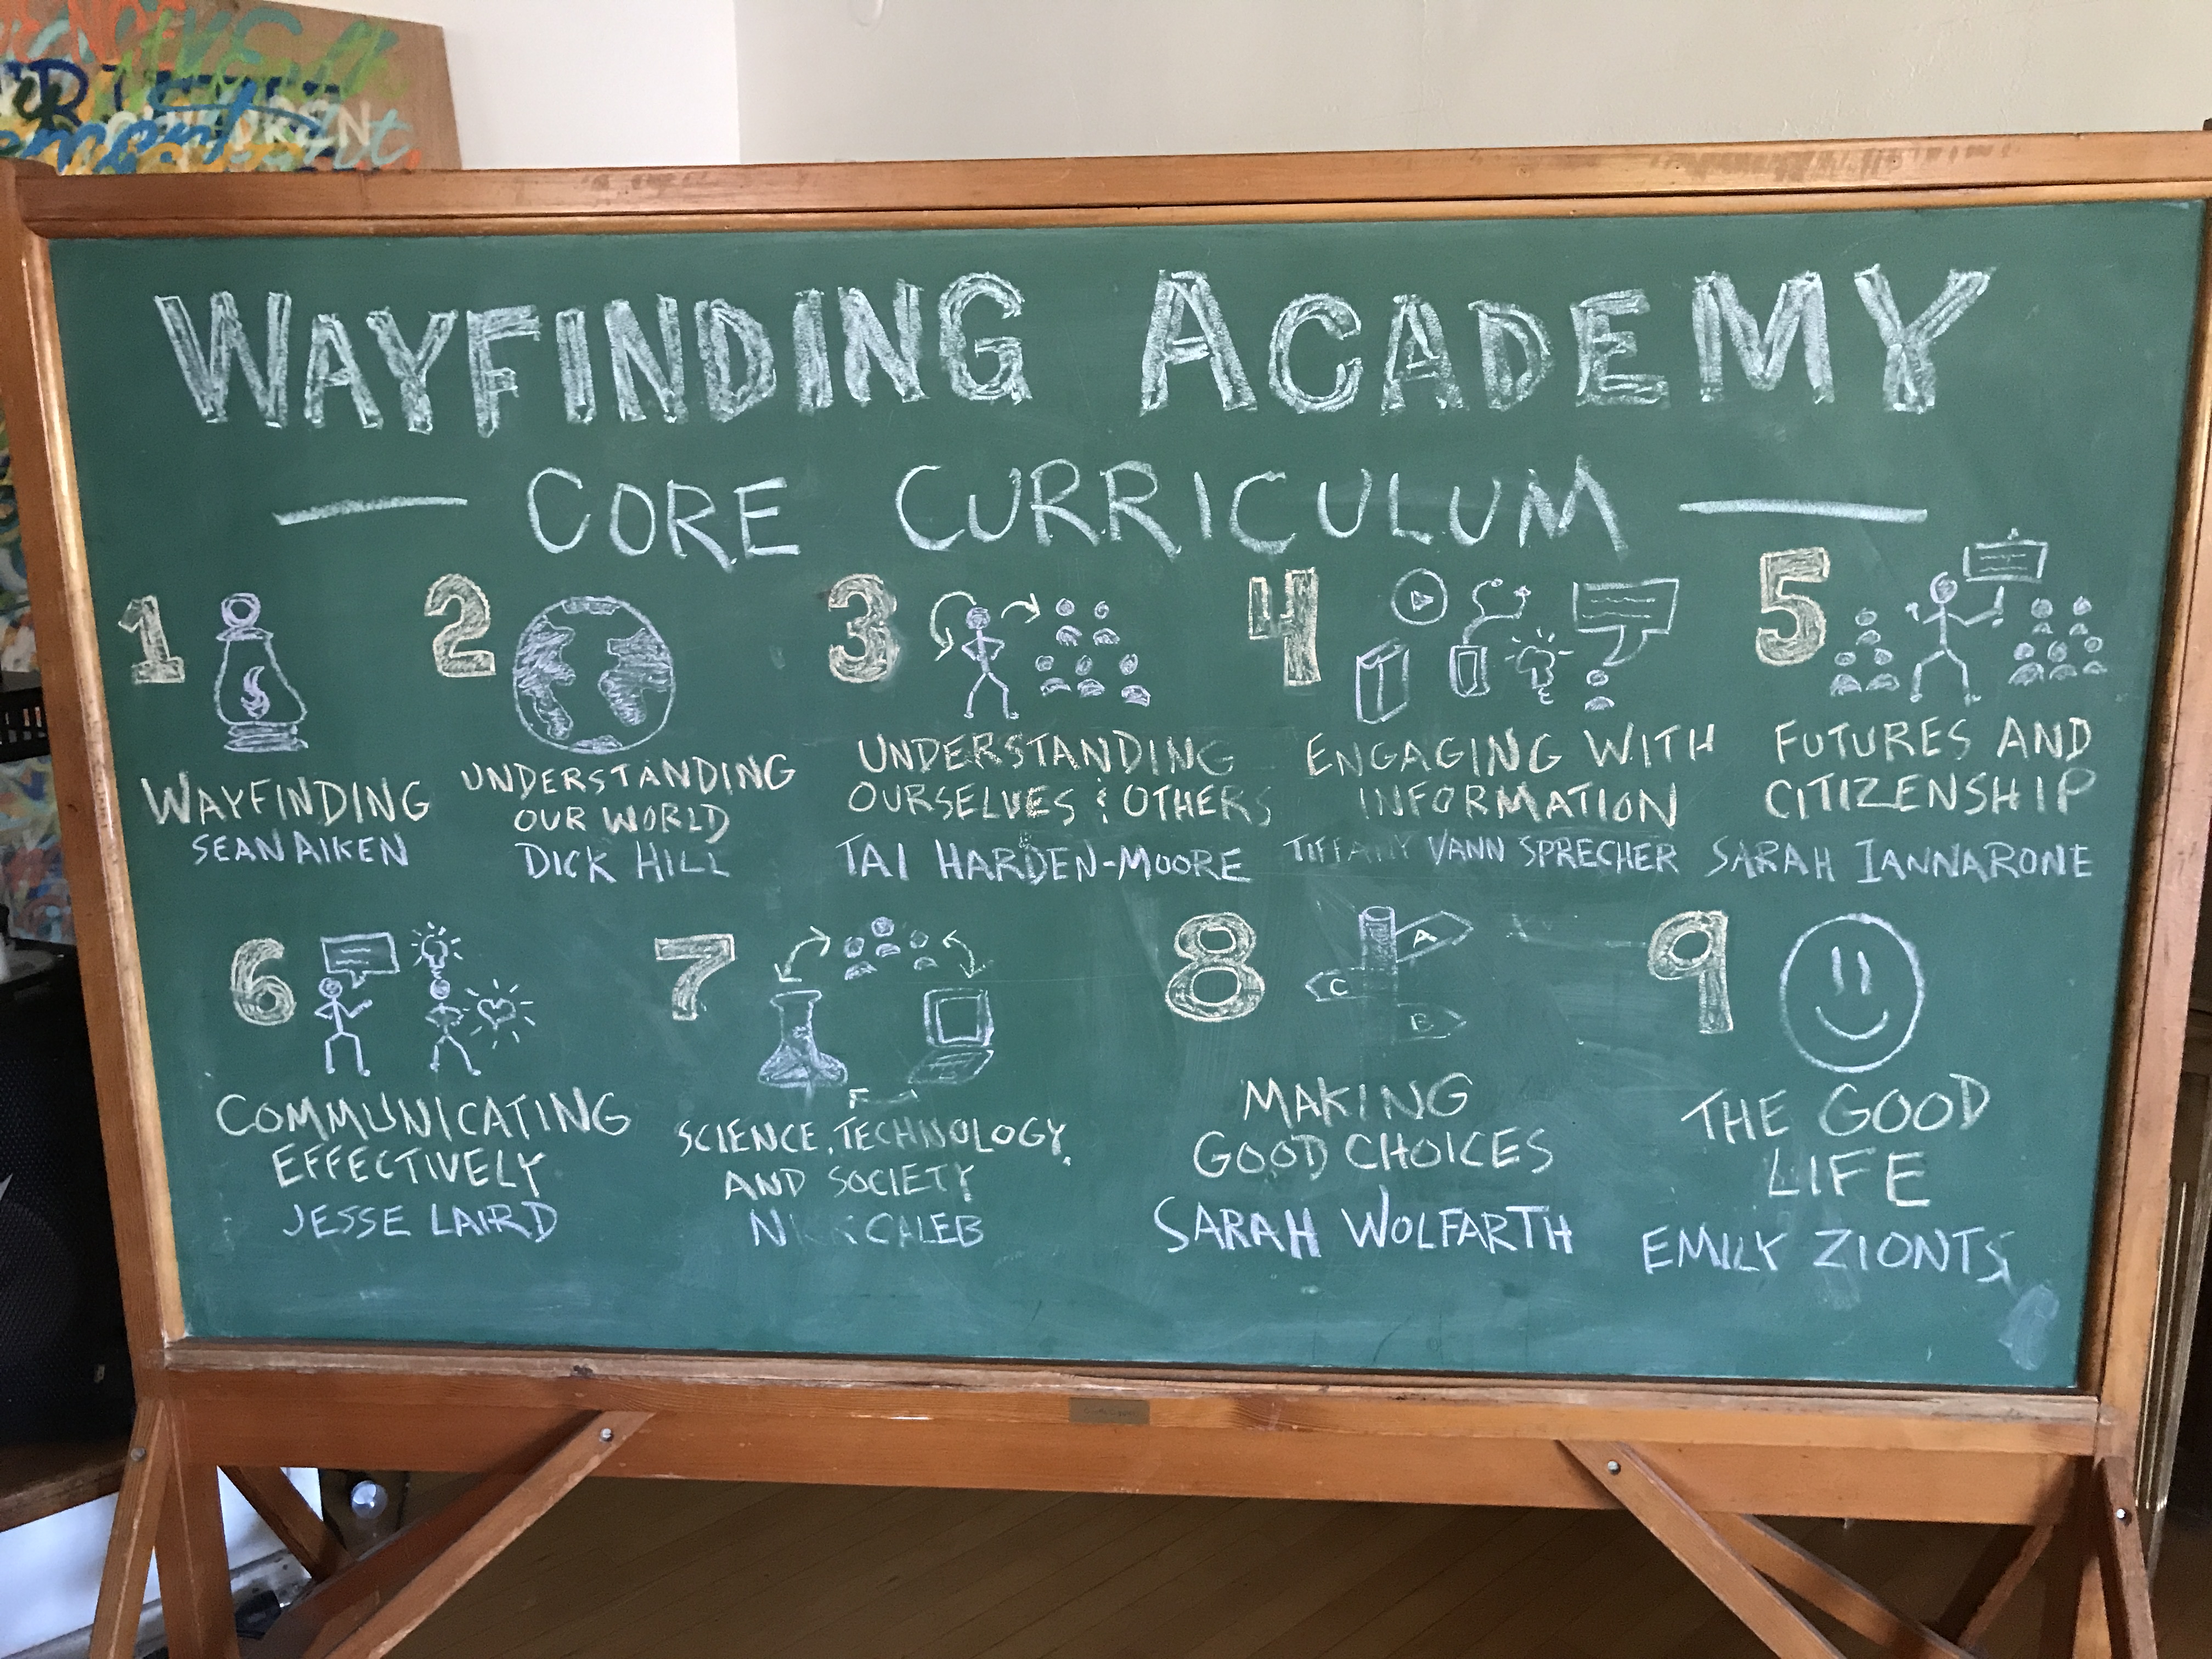 CHILDREN
WAYFINDING ACADEMY
CORE CURRICULUM
1
WAYFINDING
SEAN AIKEN
2
UNDERSTANDING
OUR WORLD
DICK HILL
3
UNDERSTANDING
OURSELVES & OTHERS
TAI HARDEN-MOORE
4
ENGAGING WITH
INFORMATION
TIFFANY VANN SPRECHER
5
FUTURES AND
CITIZENSHIP
SARAH IANNARONE
6
COMMUNICATING
EFFECTIVELY
JESSE LAIRD
7
SCIENCE, TECHNOLOGY,
AND SOCIETY
CALEB
8
A
C
B
MAKING
GOOD CHOICES
SARAH WOLFARTH
9
THE GOOD
LIFE
EMILY ZIONTS